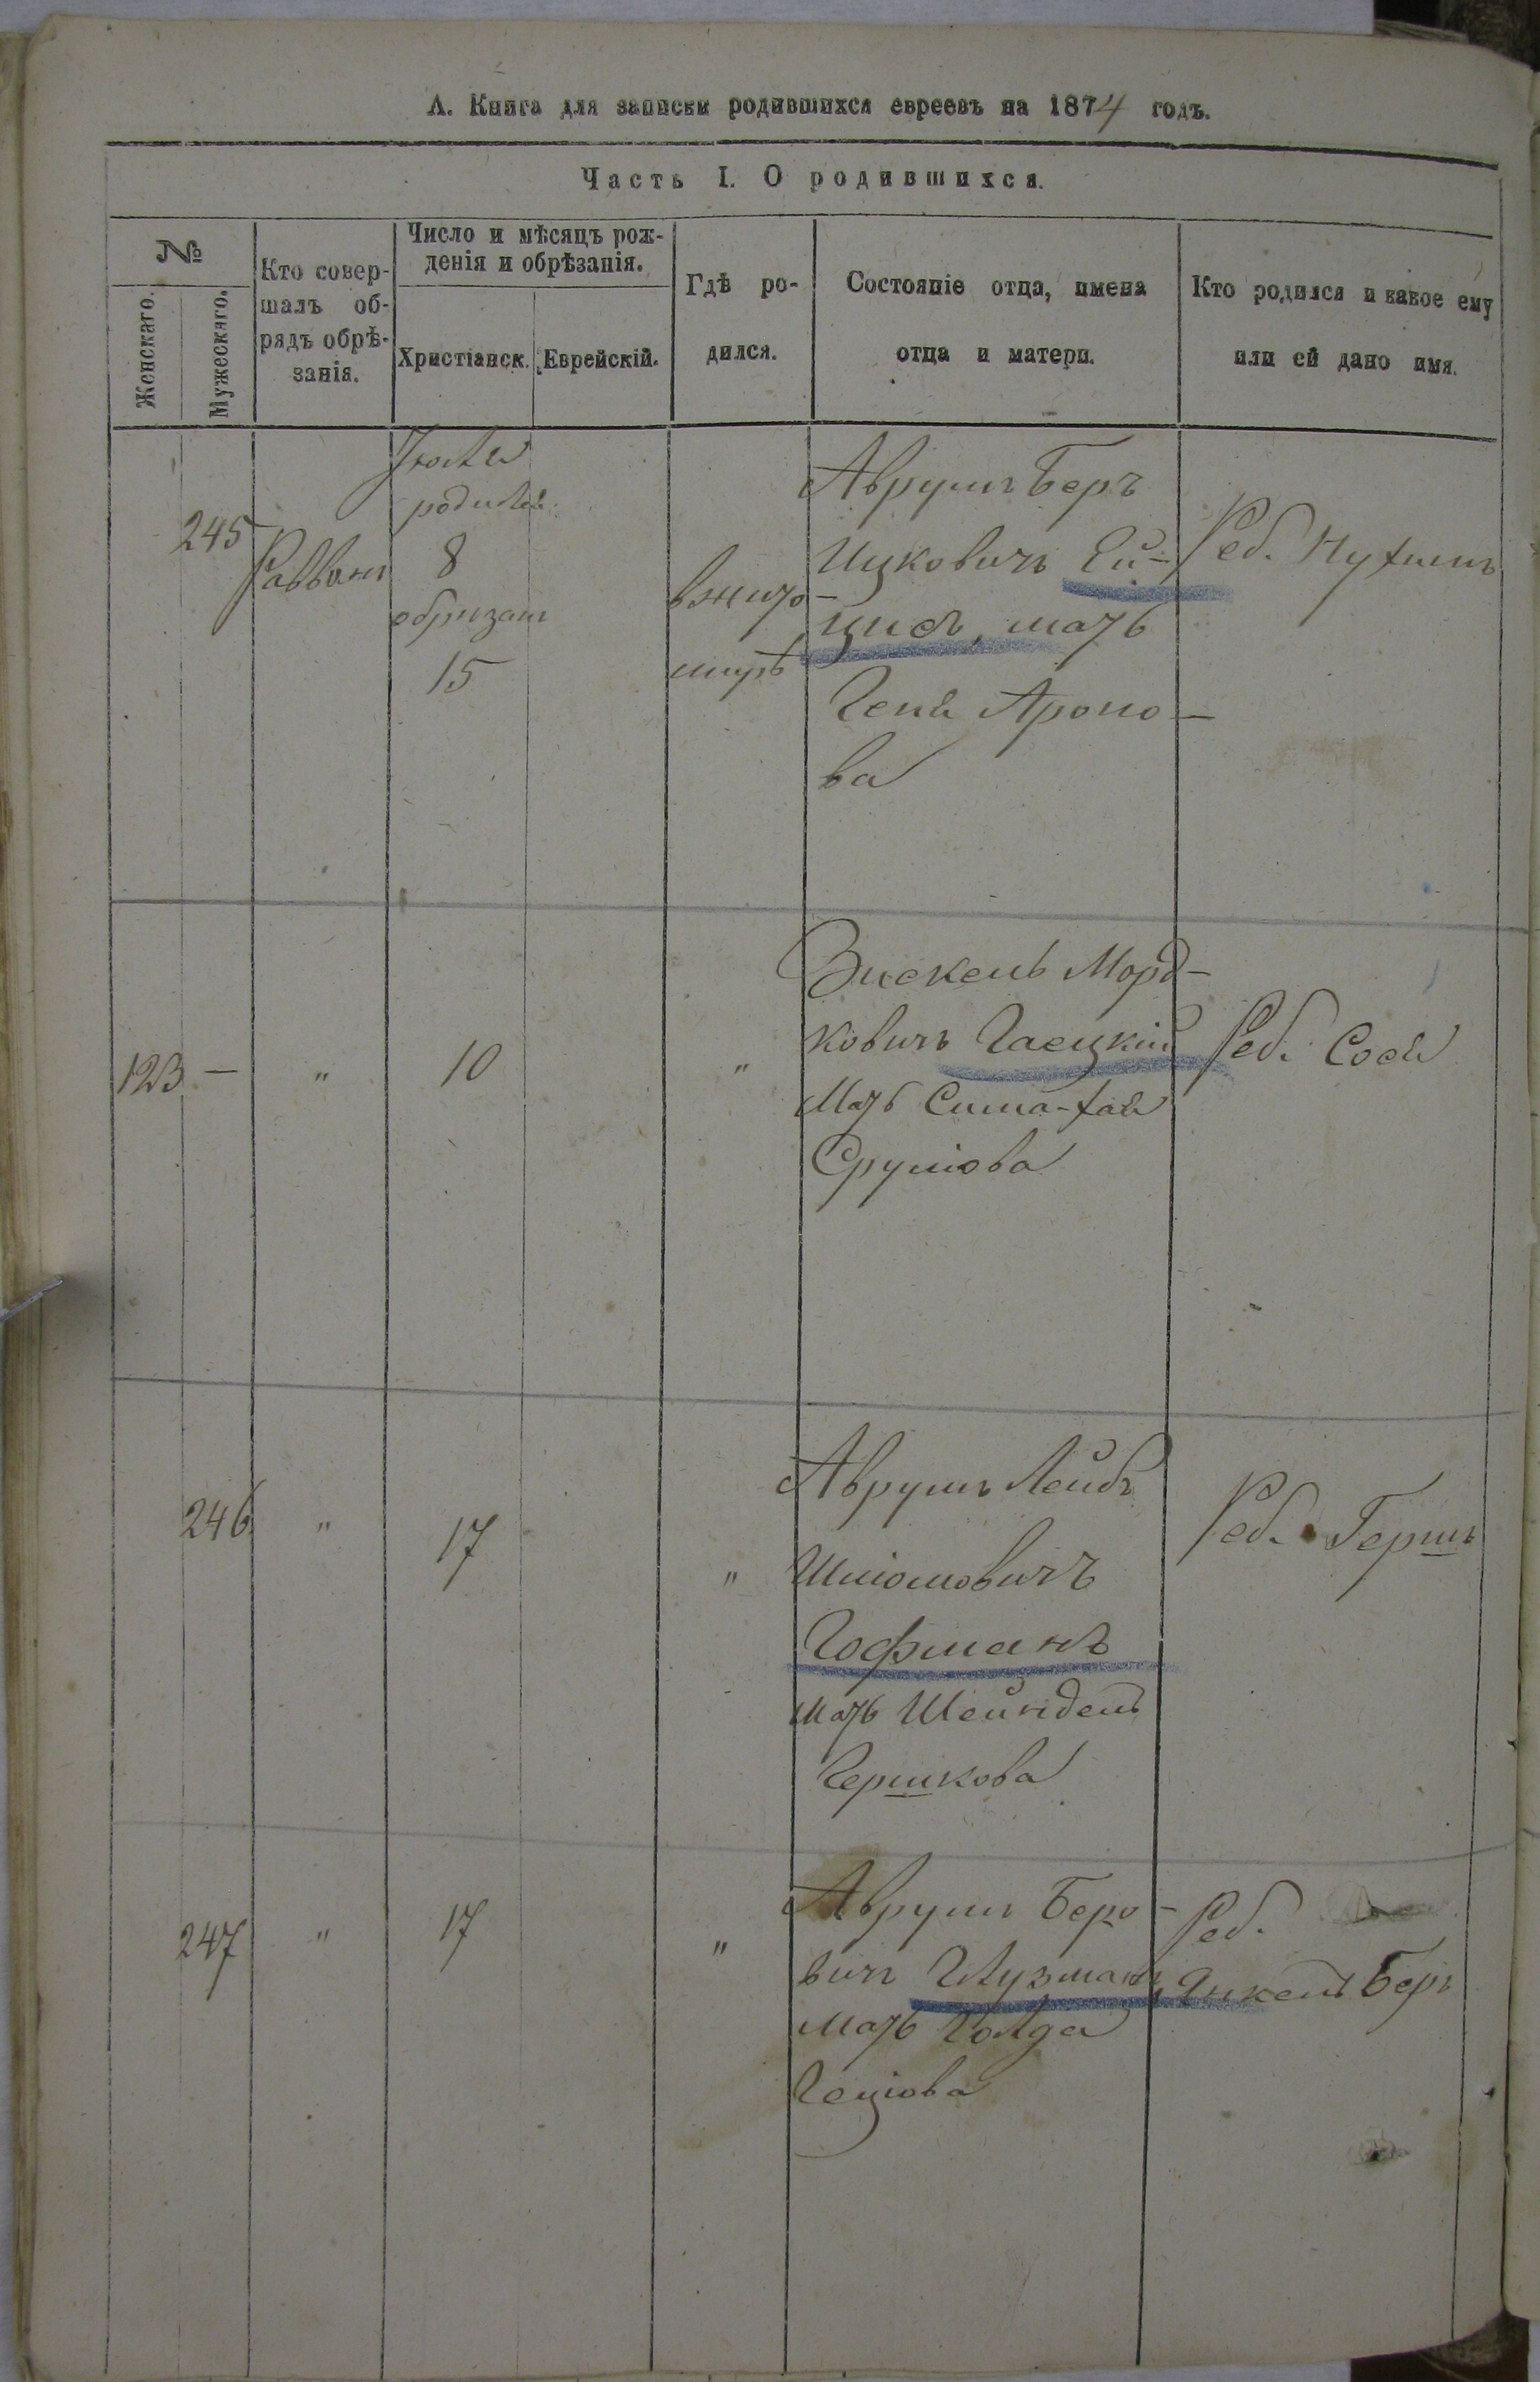 А. Книга для записки родившихся евреевъ на 1874 годъ.
Часть I. О родившихся.
№
Женскаго.
Мужескаго.
Кто совер-
шалъ об-
рядъ обрѣ-
занія.
Число и мѣсяцъ рож-
денія и обрѣзанія.
Христіанск.
Еврейскій.
Гдѣ ро-
дился.
Состояніе отца, имена
отца и матери.
Кто родился и какое ему
или ей дано имя.
245
Раввинъ
Іюля
родился
8
обрезанъ
15
в Жито-
мирѣ
Аврумъ Беръ
Ицковичъ Ей-
цисъ, мать
Геня Ароно-
ва
Реб. Нухимъ
123 —
"
10
"
Зискель Морд-
ковичъ Гаецкій
Мать Сима-Хая
Срулiова
Реб. Сося
246
"
17
"
Аврумъ Лейбъ
Шліомовичъ
Гофманъ
мать Шейндель
Гершкова
Реб. Гершъ
247
"
17
"
Аврумъ Беро-
вичъ Глузманъ,
мать Голда
Гецiова
Реб.
Янкель Беръ